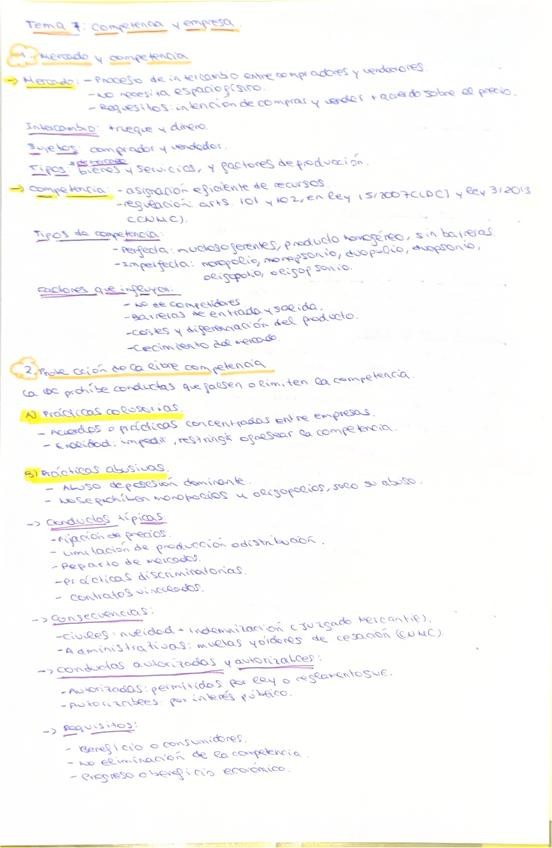 Tema 7: Competencia y empresa.
1. Mercado y competencia
→ Mercado: - Proceso de intercambio entre compradores y vendedores.
- No necesita espacio físico.
- Requisitos: intención de comprar y vender + acuerdo sobre el precio.
Intercambio: trueque y dinero.
Sujetos: comprador y vendedor.
Tipos de mercado: bienes y servicios, y factores de producción.
→ Competencia: - asignación eficiente de recursos
- regulación: arts. 101 y 102, en ley 15/2007 (LDC) y ley 3/2013
(CNMC).
Tipos de competencia:
- Perfecta: muchos oferentes, producto homogéneo, sin barreras
- Imperfecta: monopolio, monopsonio, duopolio, duopsonio,
oligopolio, oligopsonio.
Factores que influyen:
- Nº de competidores
- Barreras de entrada y salida.
- Costes y diferenciación del producto.
- Crecimiento del mercado
2. Protección de la libre competencia
La LDC prohíbe conductas que falsen o limiten la competencia.
A) Prácticas colusorias.
- Acuerdos o prácticas concentradas entre empresas.
- Finalidad: impedir, restringir o falsear la competencia.
B) Prácticas abusivas.
- Abuso de posesión dominante.
- No se prohíben monopolios u oligopolios, solo su abuso.
→ Conductas típicas
- Fijación de precios.
- Limitación de producción o distribución.
- Reparto de mercados.
- Prácticas discriminatorias.
- Contratos vinculados.
→ Consecuencias:
- Civiles: nulidad + indemnización (Juzgado Mercantil).
- Administrativas: multas y órdenes de cesación (CNMC).
→ Conductas autorizadas y autorizables:
- Autorizadas: permitidas por ley o reglamentos UE.
- Autorizables: por interés público.
→ Requisitos:
- Beneficio a consumidores.
- No eliminación de la competencia.
- Progreso o beneficio económico.